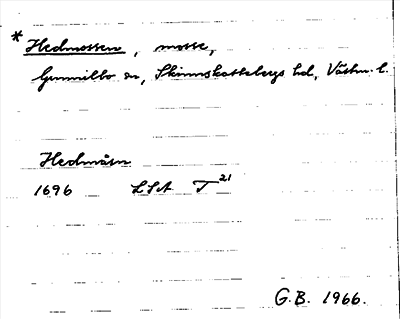 * Hedmossen, mosse,
Gunnilbo sn, Skinnskattebergs hd, Västm. l.
Hedmåsen
1696 LSA T 21
G.B. 1966.